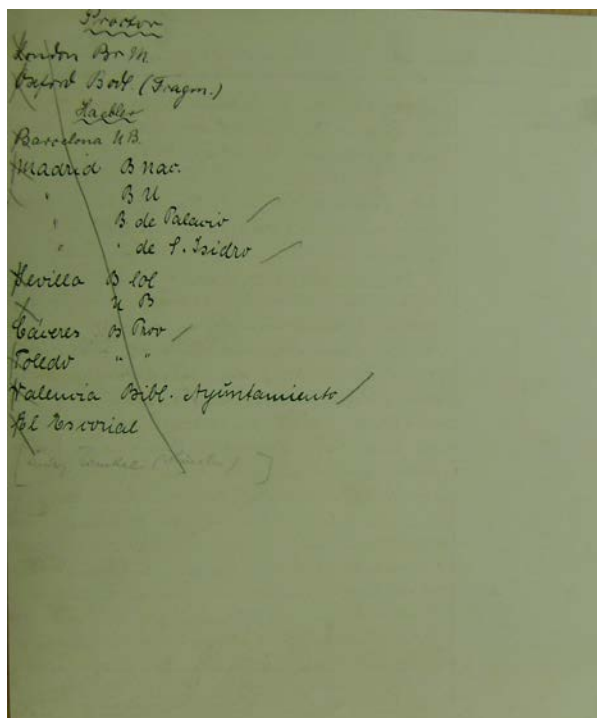 Proctor
London Br M.
Oxford Bodl. (Fragm.)
Haebler
Barcelona UB.
Madrid B nac.
" B U
" B de Palacio
" " de S. Isidro
Sevilla B Col
U B
Cáveres B Prov
Toledo " "
Valencia Bibl. Ayuntamiento
El Escorial